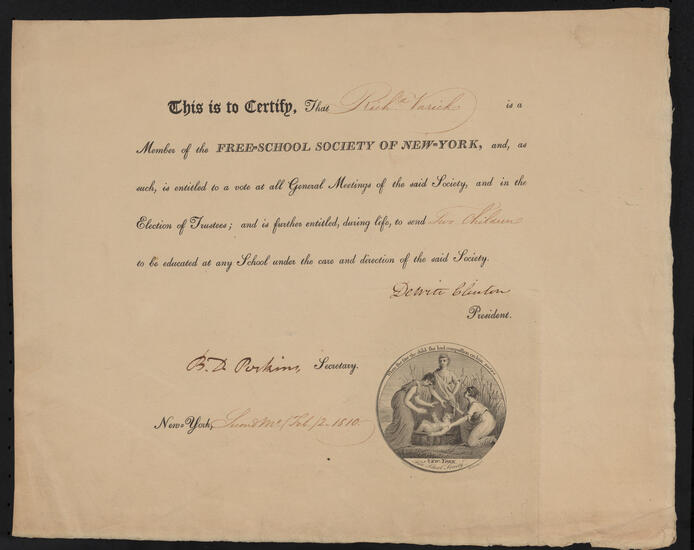 This is to Certify, That Richd Varick is a
Member of the FREE-SCHOOL SOCIETY OF NEW-YORK, and, as
such, is entitled to a vote at all General Meetings of the said Society, and in the
Election of Trustees; and is further entitled, during life, to send Two Children
to be educated at any School under the care and direction of the said Society.
DeWitt Clinton
President.
B. D. Perkins, Secretary.
New-York, 1810.
the child
NEW-YORK
Free School Society